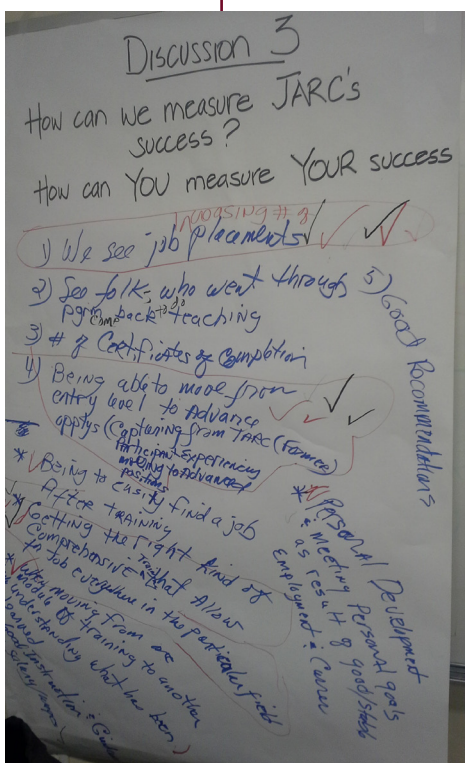 Discussion 3
How can we measure JARC's
success?
How can YOU measure YOUR success
Increasing # of
1) We see job placements
2) See folks who went through
pgrm come back to do teaching
3) # of Certificates of Completion
4) Being able to move from
entry level to Advance
(Capturing from JARC (Former)
Participant Experiencing
moving to Advanced
positions
5) Good Recommendations
* Being to easily find a job
After TRAINING
* Getting the right kind of
Comprehensive training that Allow
to job everywhere in the particular field
* when moving from one
module of training to another
understanding what has been
* Personal Development
& Meeting Personal goals
as result of good/stable
Employment & Career